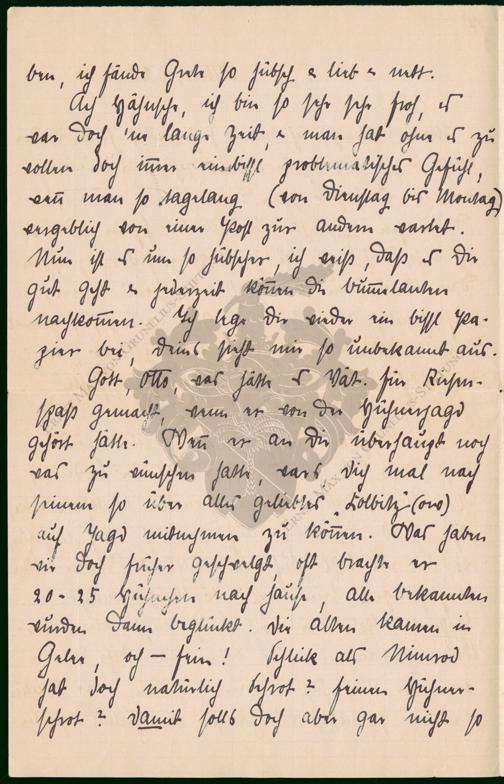 ben, ich fände Grete so hübsch & lieb & nett.
Ach Hähnsche, ich bin so sehr sehr froh, es
war doch 'ne lange Zeit, & man hat ohne es zu
wollen doch immer ein bissl problematisches Gefühl,
wenn man so tagelang (von Dienstag bis Montag)
vergeblich von einer Post zur andern wartet.
Nun ist es um so hübscher, ich weiß, daß es Dir
gut geht & jederzeit können die bummelanten
nachkommen. Ich lege Dir wieder ein bissl Pa-
pier bei, deins sieht mir so unbekannt aus.
Gott Otto, was hätte es Vät. für Riesen-
spaß gemacht, wenn er von der Hühnerjagd
gehört hätte. Wenn er an Dir überhaupt noch
was zu wünschen hatte, wars Dich mal nach
seinem so über alles geliebtes "Kolbitz" (ow)
auf Jagd mitnehmen zu können. Was haben
wir doch früher geschwelgt, oft brachte er
20-25 Hühnchen nach Hause, alle bekannten
wurden dann beglückt. Die alten kamen in
Gelee, och – fein! Schleik als Nimrod
hat doch natürlich Schrot? feinen Hühner-
schrot? Damit solls doch aber gar nicht so